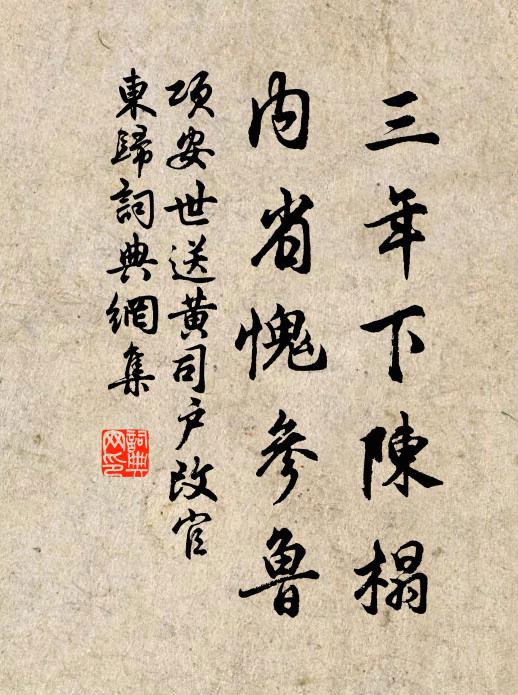 三年下陳榻
内省愧參魯
項安世送黃司戶改官
東歸詞典網集
詞典
网印